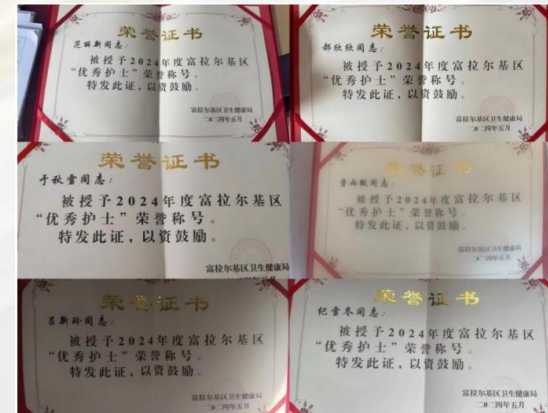 荣誉证书
范丽新同志：
被授予2024年度富拉尔基区
“优秀护士”荣誉称号。
特发此证，以资鼓励。
富拉尔基区卫生健康局
二〇二四年五月
荣誉证书
郝欣欣同志：
被授予2024年度富拉尔基区
“优秀护士”荣誉称号。
特发此证，以资鼓励。
富拉尔基区卫生健康局
二〇二四年五月
荣誉证书
于秋雪同志：
被授予2024年度富拉尔基区
“优秀护士”荣誉称号。
特发此证，以资鼓励。
富拉尔基区卫生健康局
荣誉证书
同志：
被授予2024年度富拉尔基区
“优秀护士”荣誉称号。
特发此证，以资鼓励。
富拉尔基区卫生健康局
二〇二四年五月
荣誉证书
吕新玲同志：
被授予2024年度富拉尔基区
“优秀护士”荣誉称号。
特发此证，以资鼓励。
富拉尔基区卫生健康局
二〇二四年五月
荣誉证书
纪雪冬同志：
被授予2024年度富拉尔基区
“优秀护士”荣誉称号。
特发此证，以资鼓励。
富拉尔基区卫生健康局
二〇二四年五月